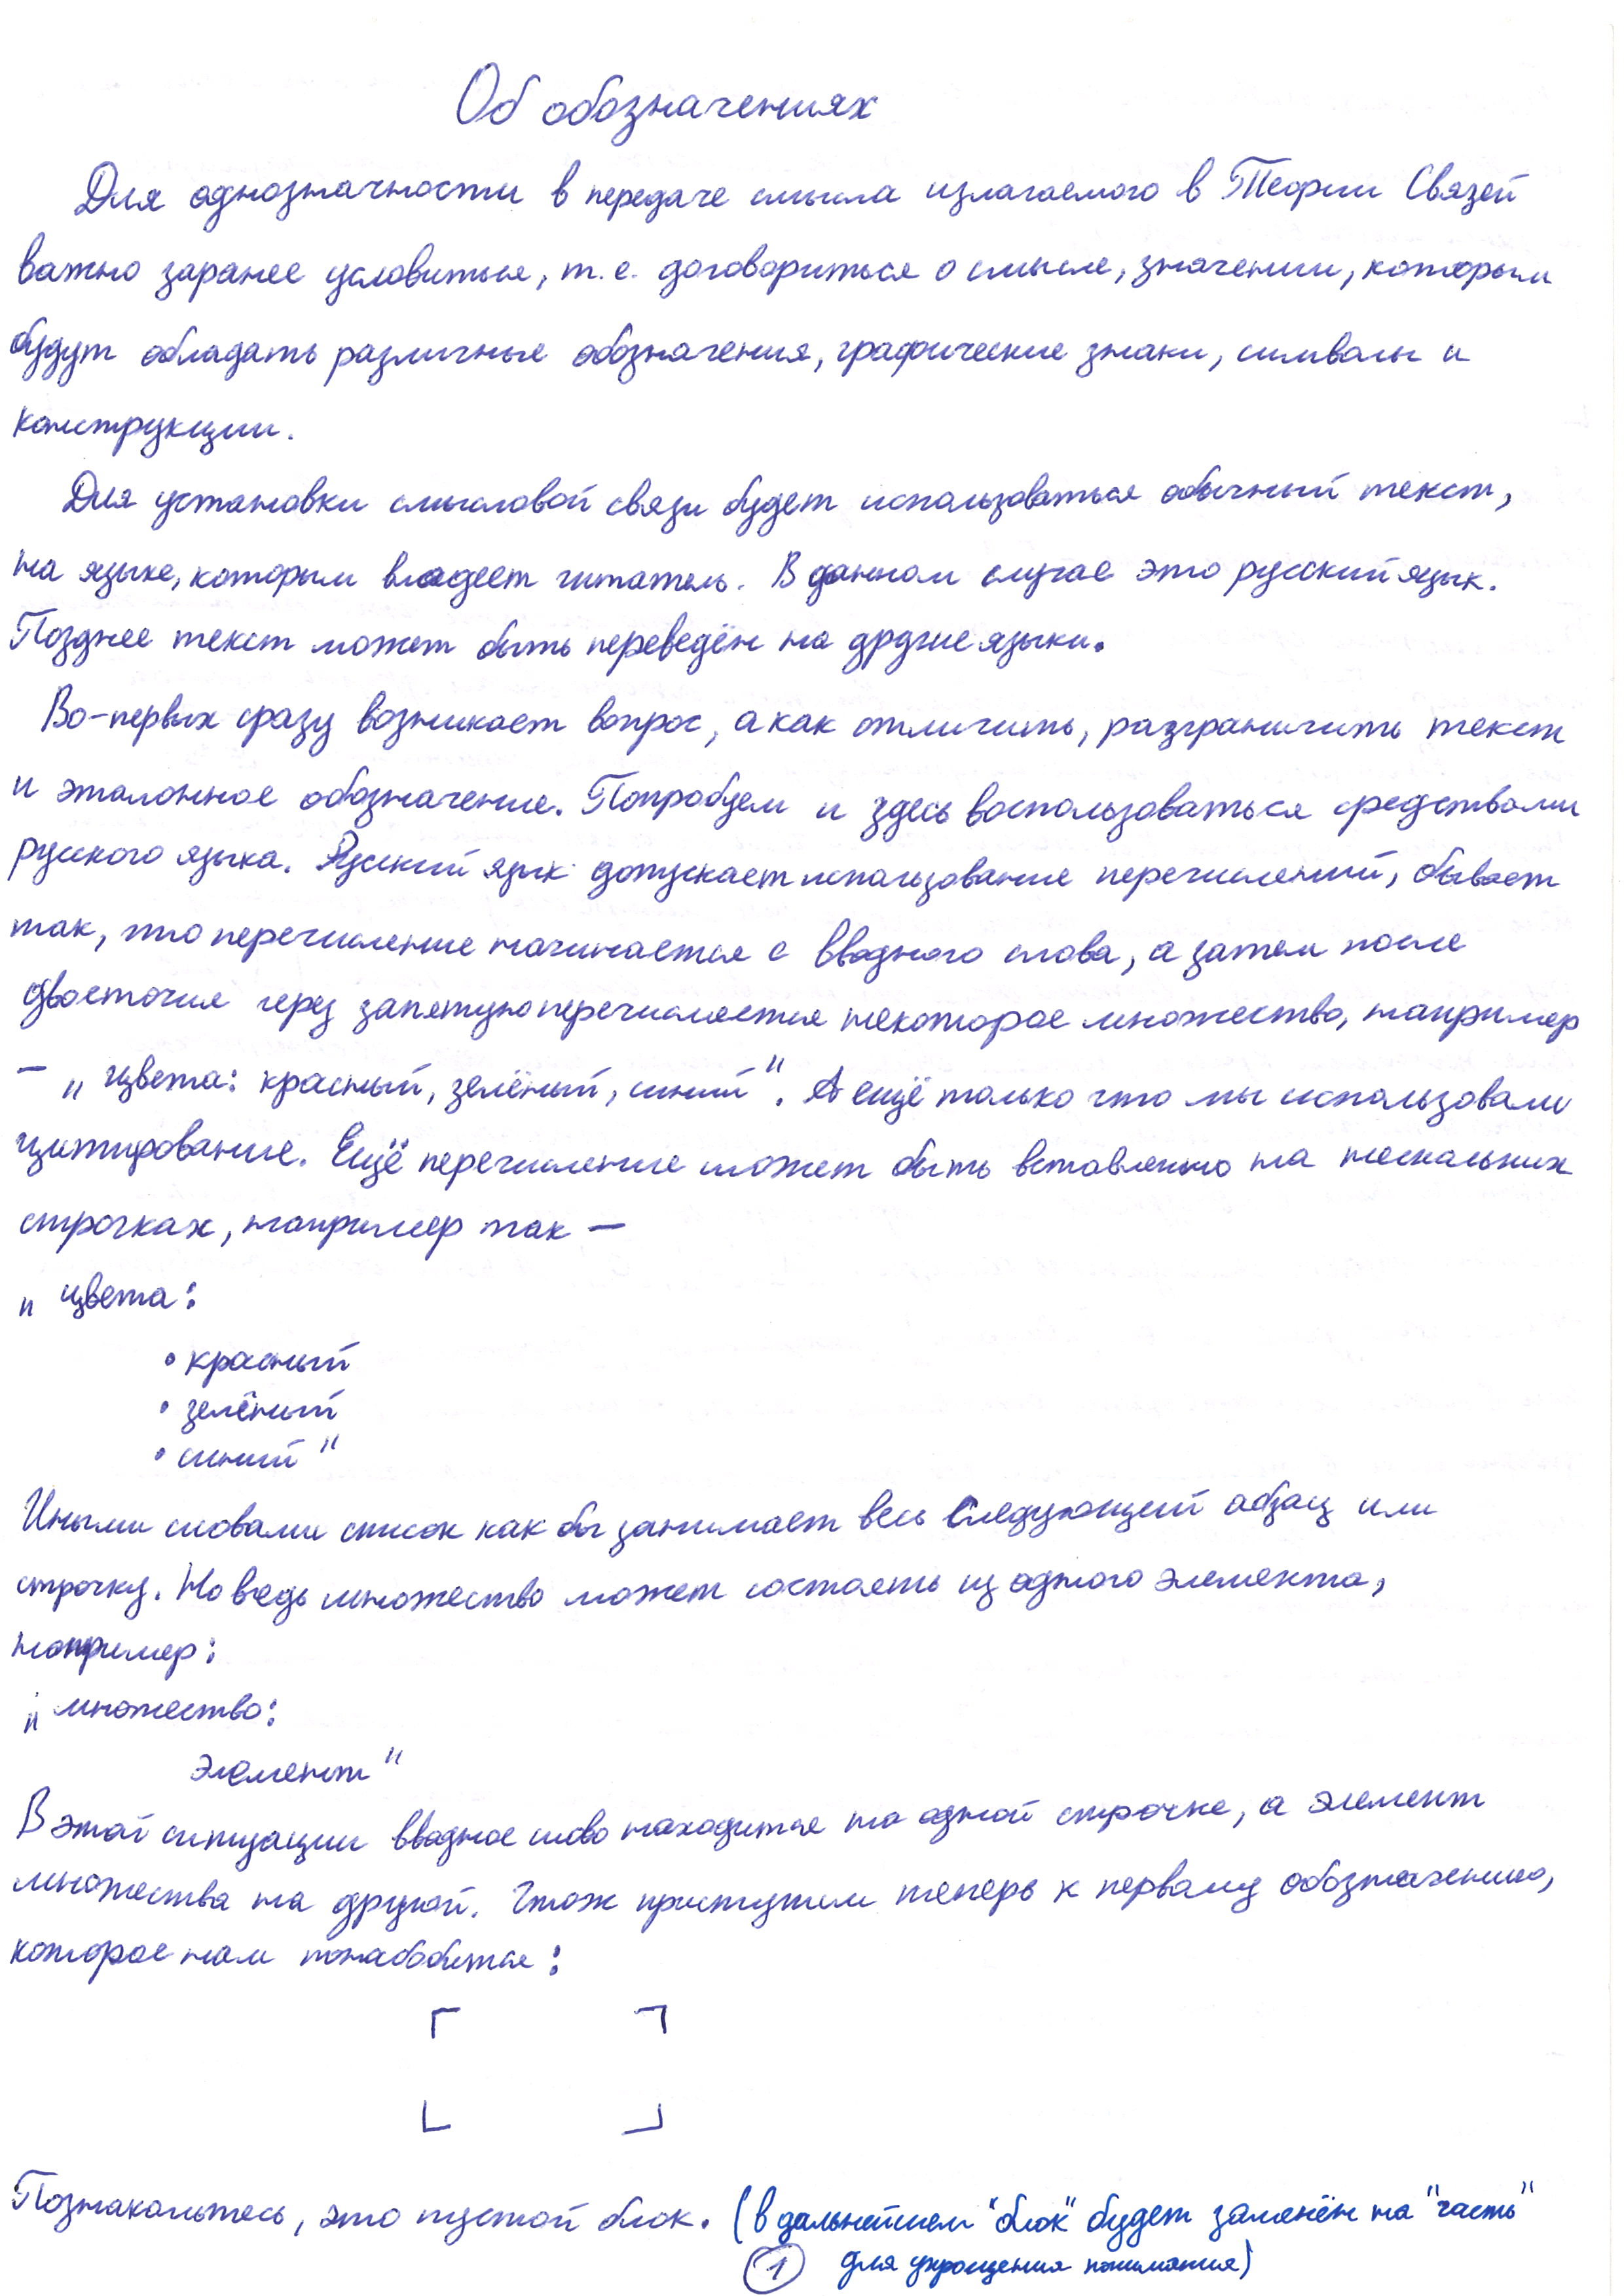 Об обозначениях
Для однозначности в передаче смысла излагаемого в Теории Связей
важно заранее условиться, т.е. договориться о смысле, значении, которым
будут обладать различные обозначения, графические знаки, символы и
конструкции.
Для установки смысловой связи будет использоваться обычный текст,
на языке, которым владеет читатель. В данном случае это русский язык.
Позднее текст может быть переведён на другие языки.
Во-первых сразу возникает вопрос, а как отличить, разграничить текст
и эталонное обозначение. Попробуем и здесь воспользоваться средствами
русского языка. Русский язык допускает использование перечислений, бывает
так, что перечисление начинается с вводного слова, а затем после
двоеточия через запятую перечисляется некоторое множество, например
– „ цвета: красный, зелёный, синий". А ещё только что мы использовали
цитирование. Ещё перечисление может быть вставленно на нескольких
строчках, например так –
„ цвета:
• красный
• зелёный
• синий "
Иными словами список как бы занимает весь следующий абзац или
строчку. Но ведь множество может состоять из одного элемента,
например:
„ множество:
элемент "
В этой ситуации вводное слово находится на одной строчке, а элемент
множества на другой. Чтож приступим теперь к первому обозначению,
которое нам понадобится:
Познакомьтесь, это пустой блок. (в дальнейшем "блок" будет заменён на "часть"
1 для упрощения понимания)